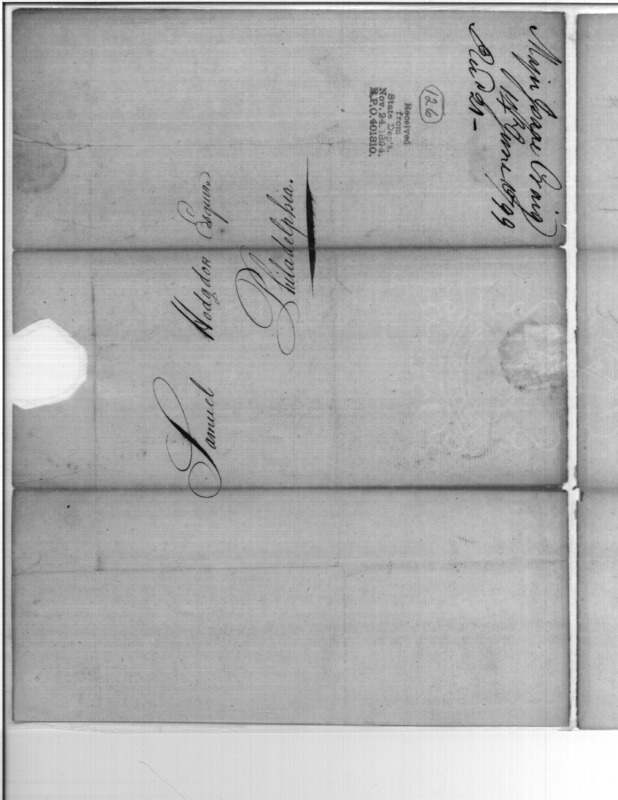 Majr Isaac Craig
14 June, 1799
Recd 21 –
126
Received
from
State Dep't.
Nov. 24, 1894.
R.P.O. 401310.
Samuel Hodgdon Esquire
Philadelphia.